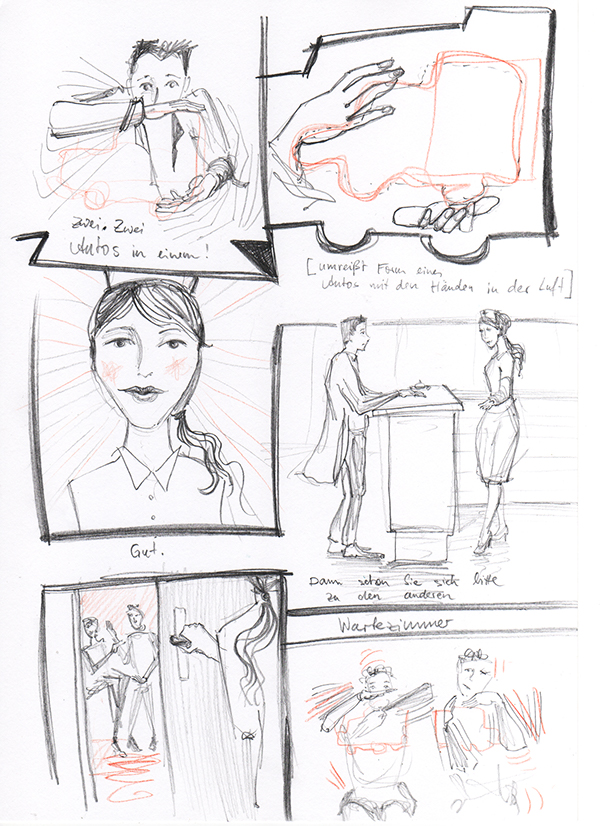 Zwei. Zwei
Autos in einem!
[umreißt Form eines
Autos mit den Händen in der Luft]
Gut.
Dann setzen Sie sich bitte
zu den anderen
Wartezimmer